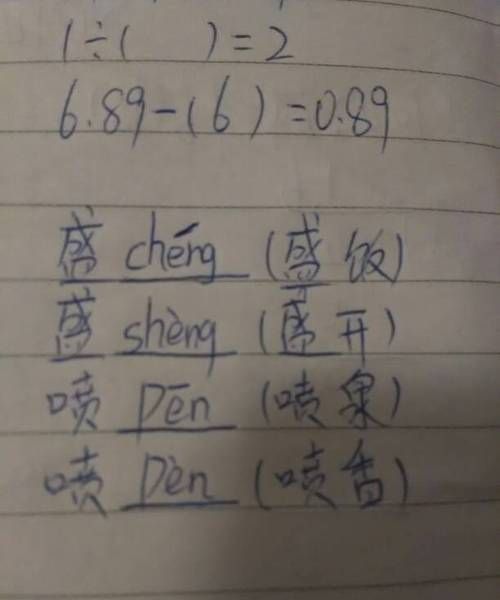 1÷( )=2
6.89-(6)=0.89
盛 chéng (盛饭)
盛 shèng (盛开)
喷 Pēn (喷泉)
喷 Pèn (喷香)